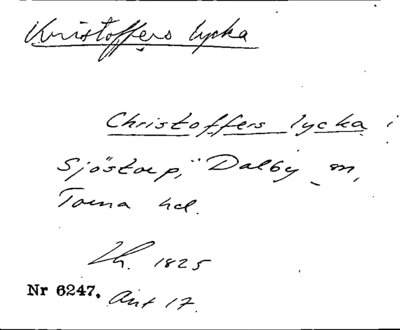 Kristoffers lycka
Christoffers lycka i
Sjöstorp, Dalby sn,
Torna hd.
1825
Nr 6247. Ant 17.